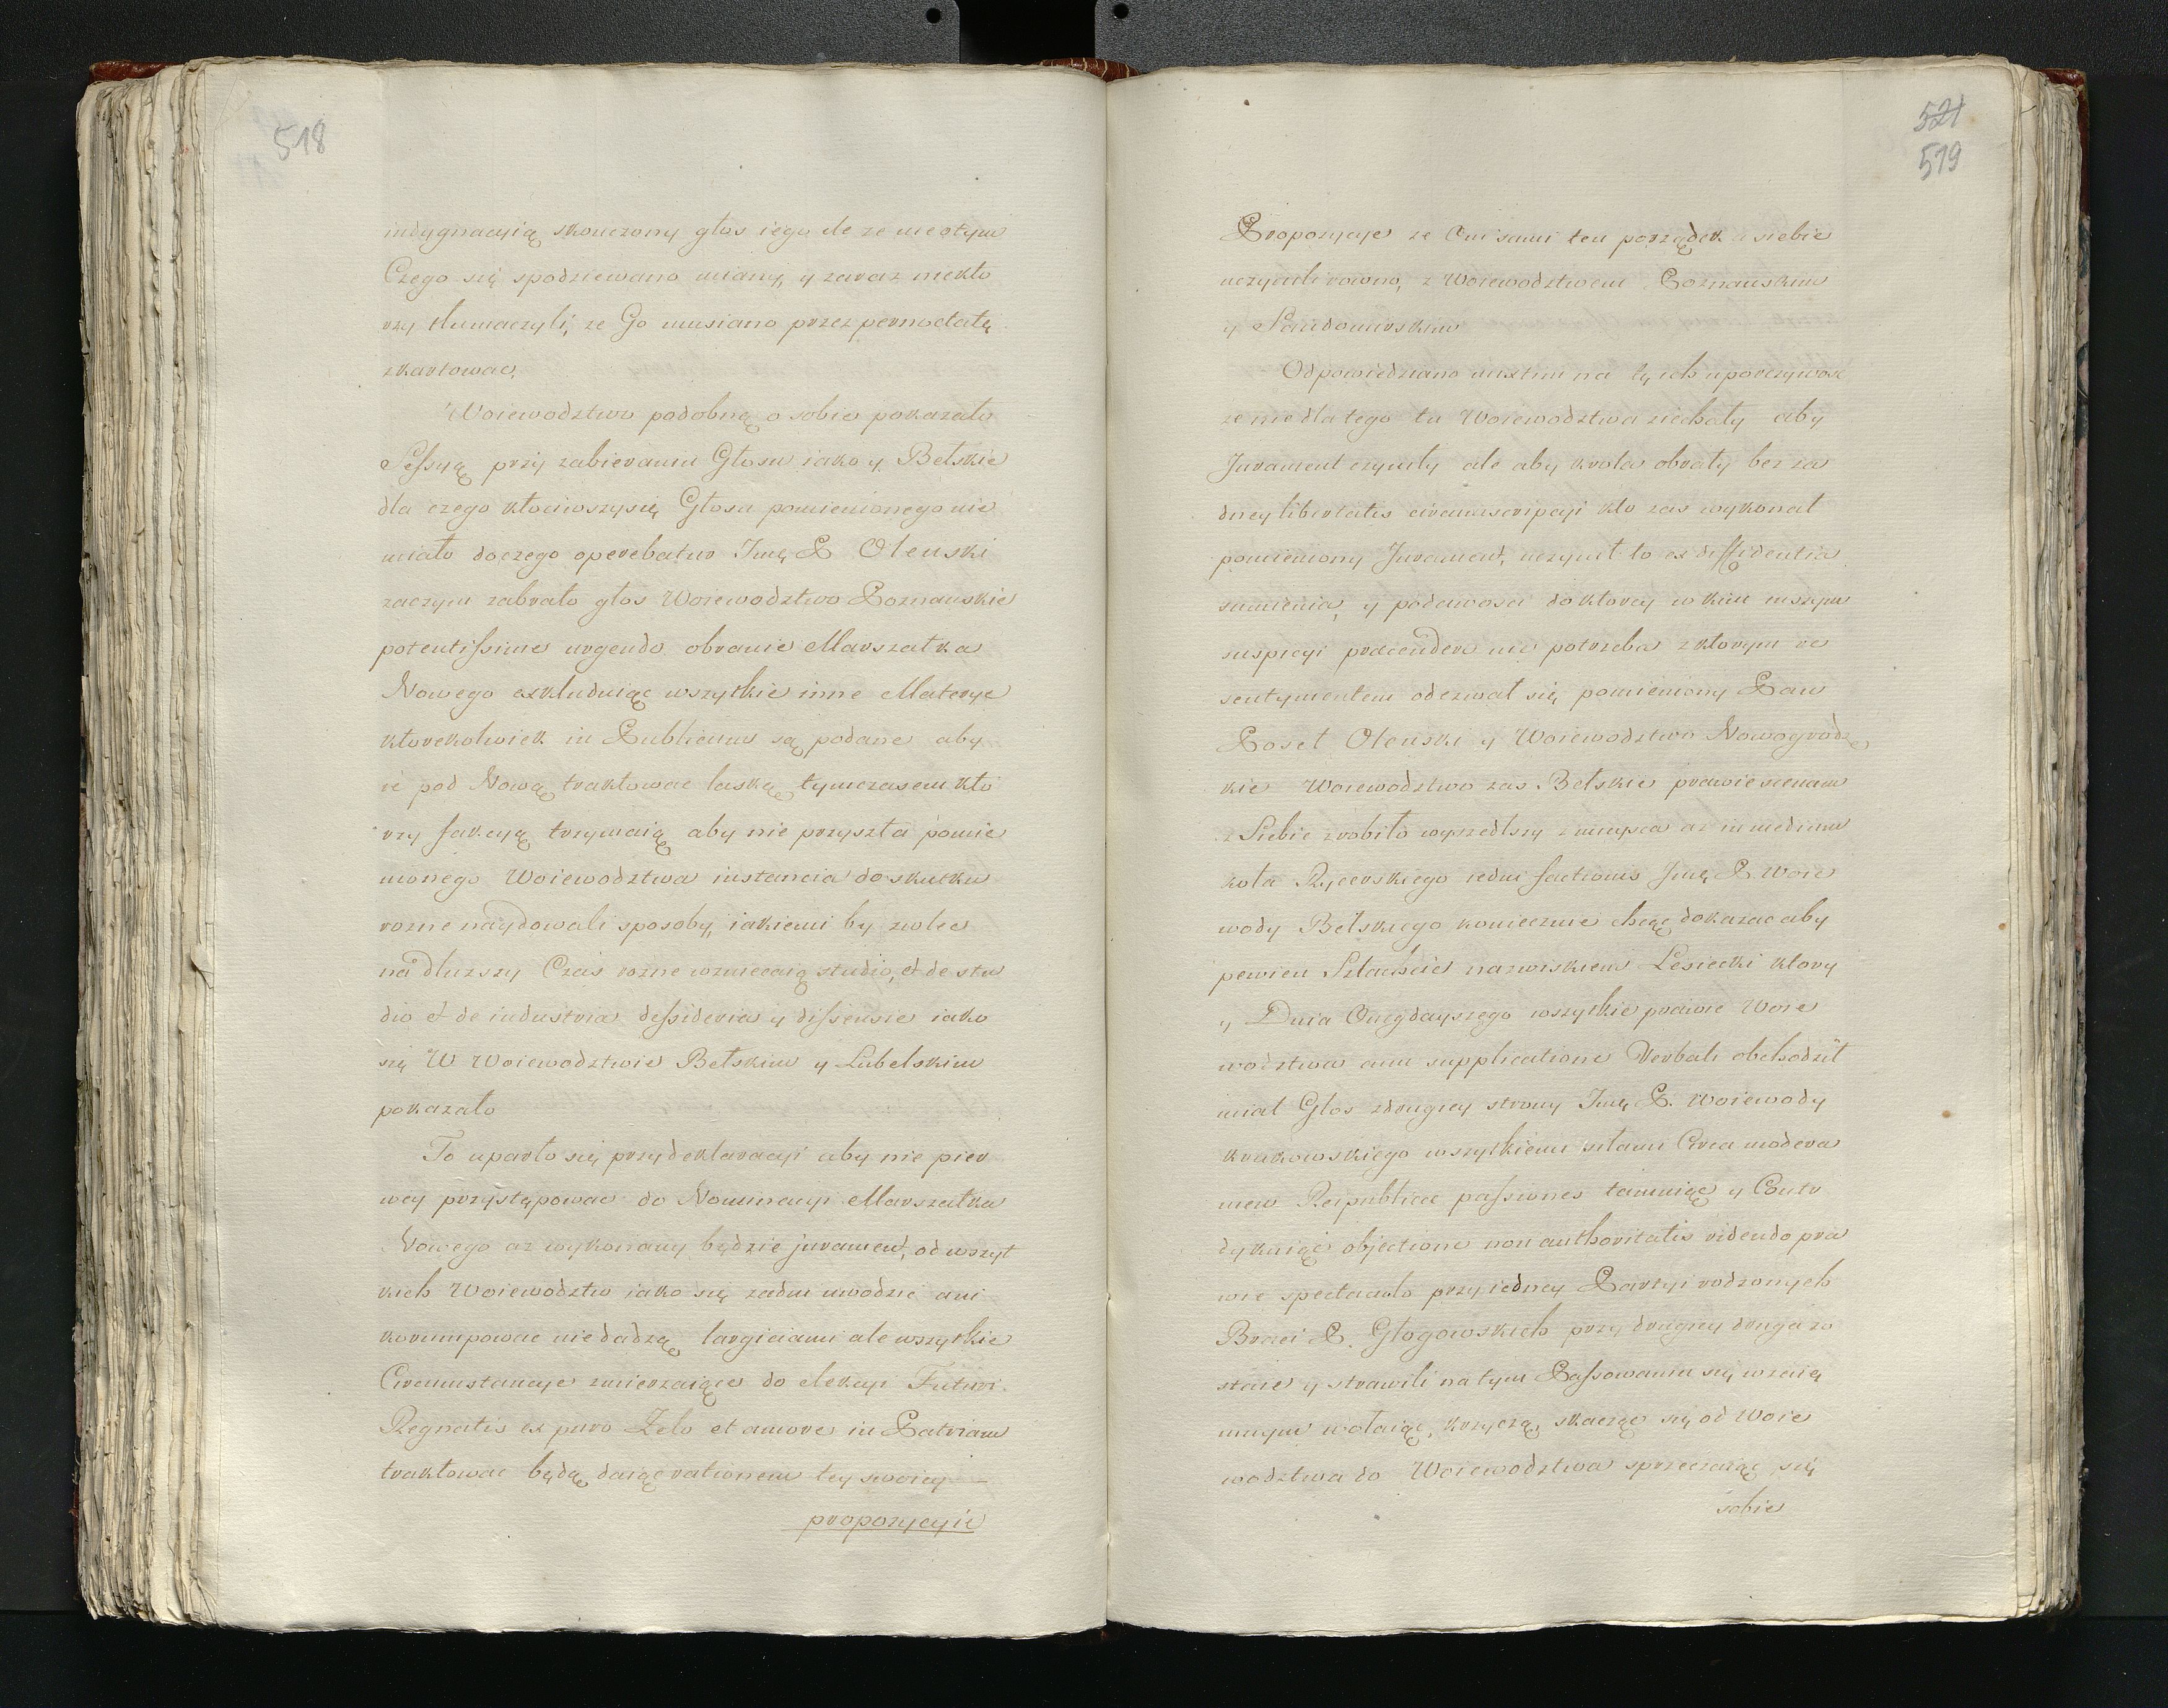 518
indygnacyią skonczony głos iego ile ze nie otym
Czego się spodziewano miany, y zaraz niekto
rzy tłumaczyli, ze Go musiano przez pernoctatę
zkartowac.
Woiewodztwo podobną o sobie pokazało
Sessyą przy zabieraniu Głosu iako y Bełskie
dla czego kłociwszy się Głosu pomienionego nie
miało do czego operebatur Jmę P Olenski
zaczym zabrało głos Woiewodztwo Poznanskie
potentissime urgendo obranie Marszałka
Nowego exkluduiąc wszytkie inne Materye
ktorekolwiek in Publicum są podane aby
ie pod Nową traktowac laską tymczasem kto
rzy fakcyą trzymaią aby nie przyszła pomie
nionego Woiewodztwa instancia do skutku
rozne naydowali sposoby, iakiemi by zwlec
na dłuzszy Czas rozne wzniecaią studio, et de stu
dio et de industria dessideria y dissensie iako
się W Woiewodztwie Bełskim y Lubelskim
pokazało
To uparło się przy deklaracyi aby nie pier
wey przystępowac do Nominacyi Marszałka
Nowego az wykonany będzie jurament, od wszyt
kich Woiewodztw iako się zadni uwodzic ani
korumpowac nie dadzą largiciami ale wszytkie
Circumstancye zmierzaiące do elekcyi Futuri
Regnatis ex puro Zelo et amore in Patriam
traktowac będą daiąc rationem tey swoiey
propozycyie

521
519
Propozycye ze Oni sami ten porządek u siebie
uczynili rowno, z Woiewodztwem Poznanskim
y Sandomirskim
Odpowiedziano na tę ich uporczywosc
ze nie dla tego tu Woiewodztwa ziechały aby
Jurament czyniły ale aby krola obrały bez za
dney libertatis circumscripcyi kto zas wykonał
pomieniony Jurament, uczynił to ex diffidentia
sumienia, y podawosci do ktorey w kim inszym
suspicyi praetendere nie potrzeba z ktorym re
sentymentem odezwał się pomieniony Pan
Poseł Olenski y Woiewodztwo Nowogrodz
kie Woiewodztwo zas Bełskie prawie scenam
z Siebie zrobiło wyszedłszy z mieysca az in medium
koła Rycerskiego iedni factionis Jmę P. Woie
wody Bełskiego koniecznie chcąc dokazac aby
pewien Szlachcic nazwiskiem Lesiecki ktory
y Dnia Onegdayszego wszytkie prawie Woie
wodztwa cum supplicatione Verbali obchodził
miał Głos zdrugiey strony Jmę P. Woiewody
krakowskiego wszytkiemi siłami Circa modera
men Reipublicae passiones tamuiąc y Contr
dykuiąc objectione non authoritatis videndo pra
wie spectaculo przy iedney Partyi rodzonych
Braci P. Głogowskich przy drugiey druga zo
staie y strawili na tym Passowaniu się wzaię
mnym wołaiąc, krzycząc, skacząc się od Woie
wodztwa do Woiewodztwa sprzeciaiąc się
sobie